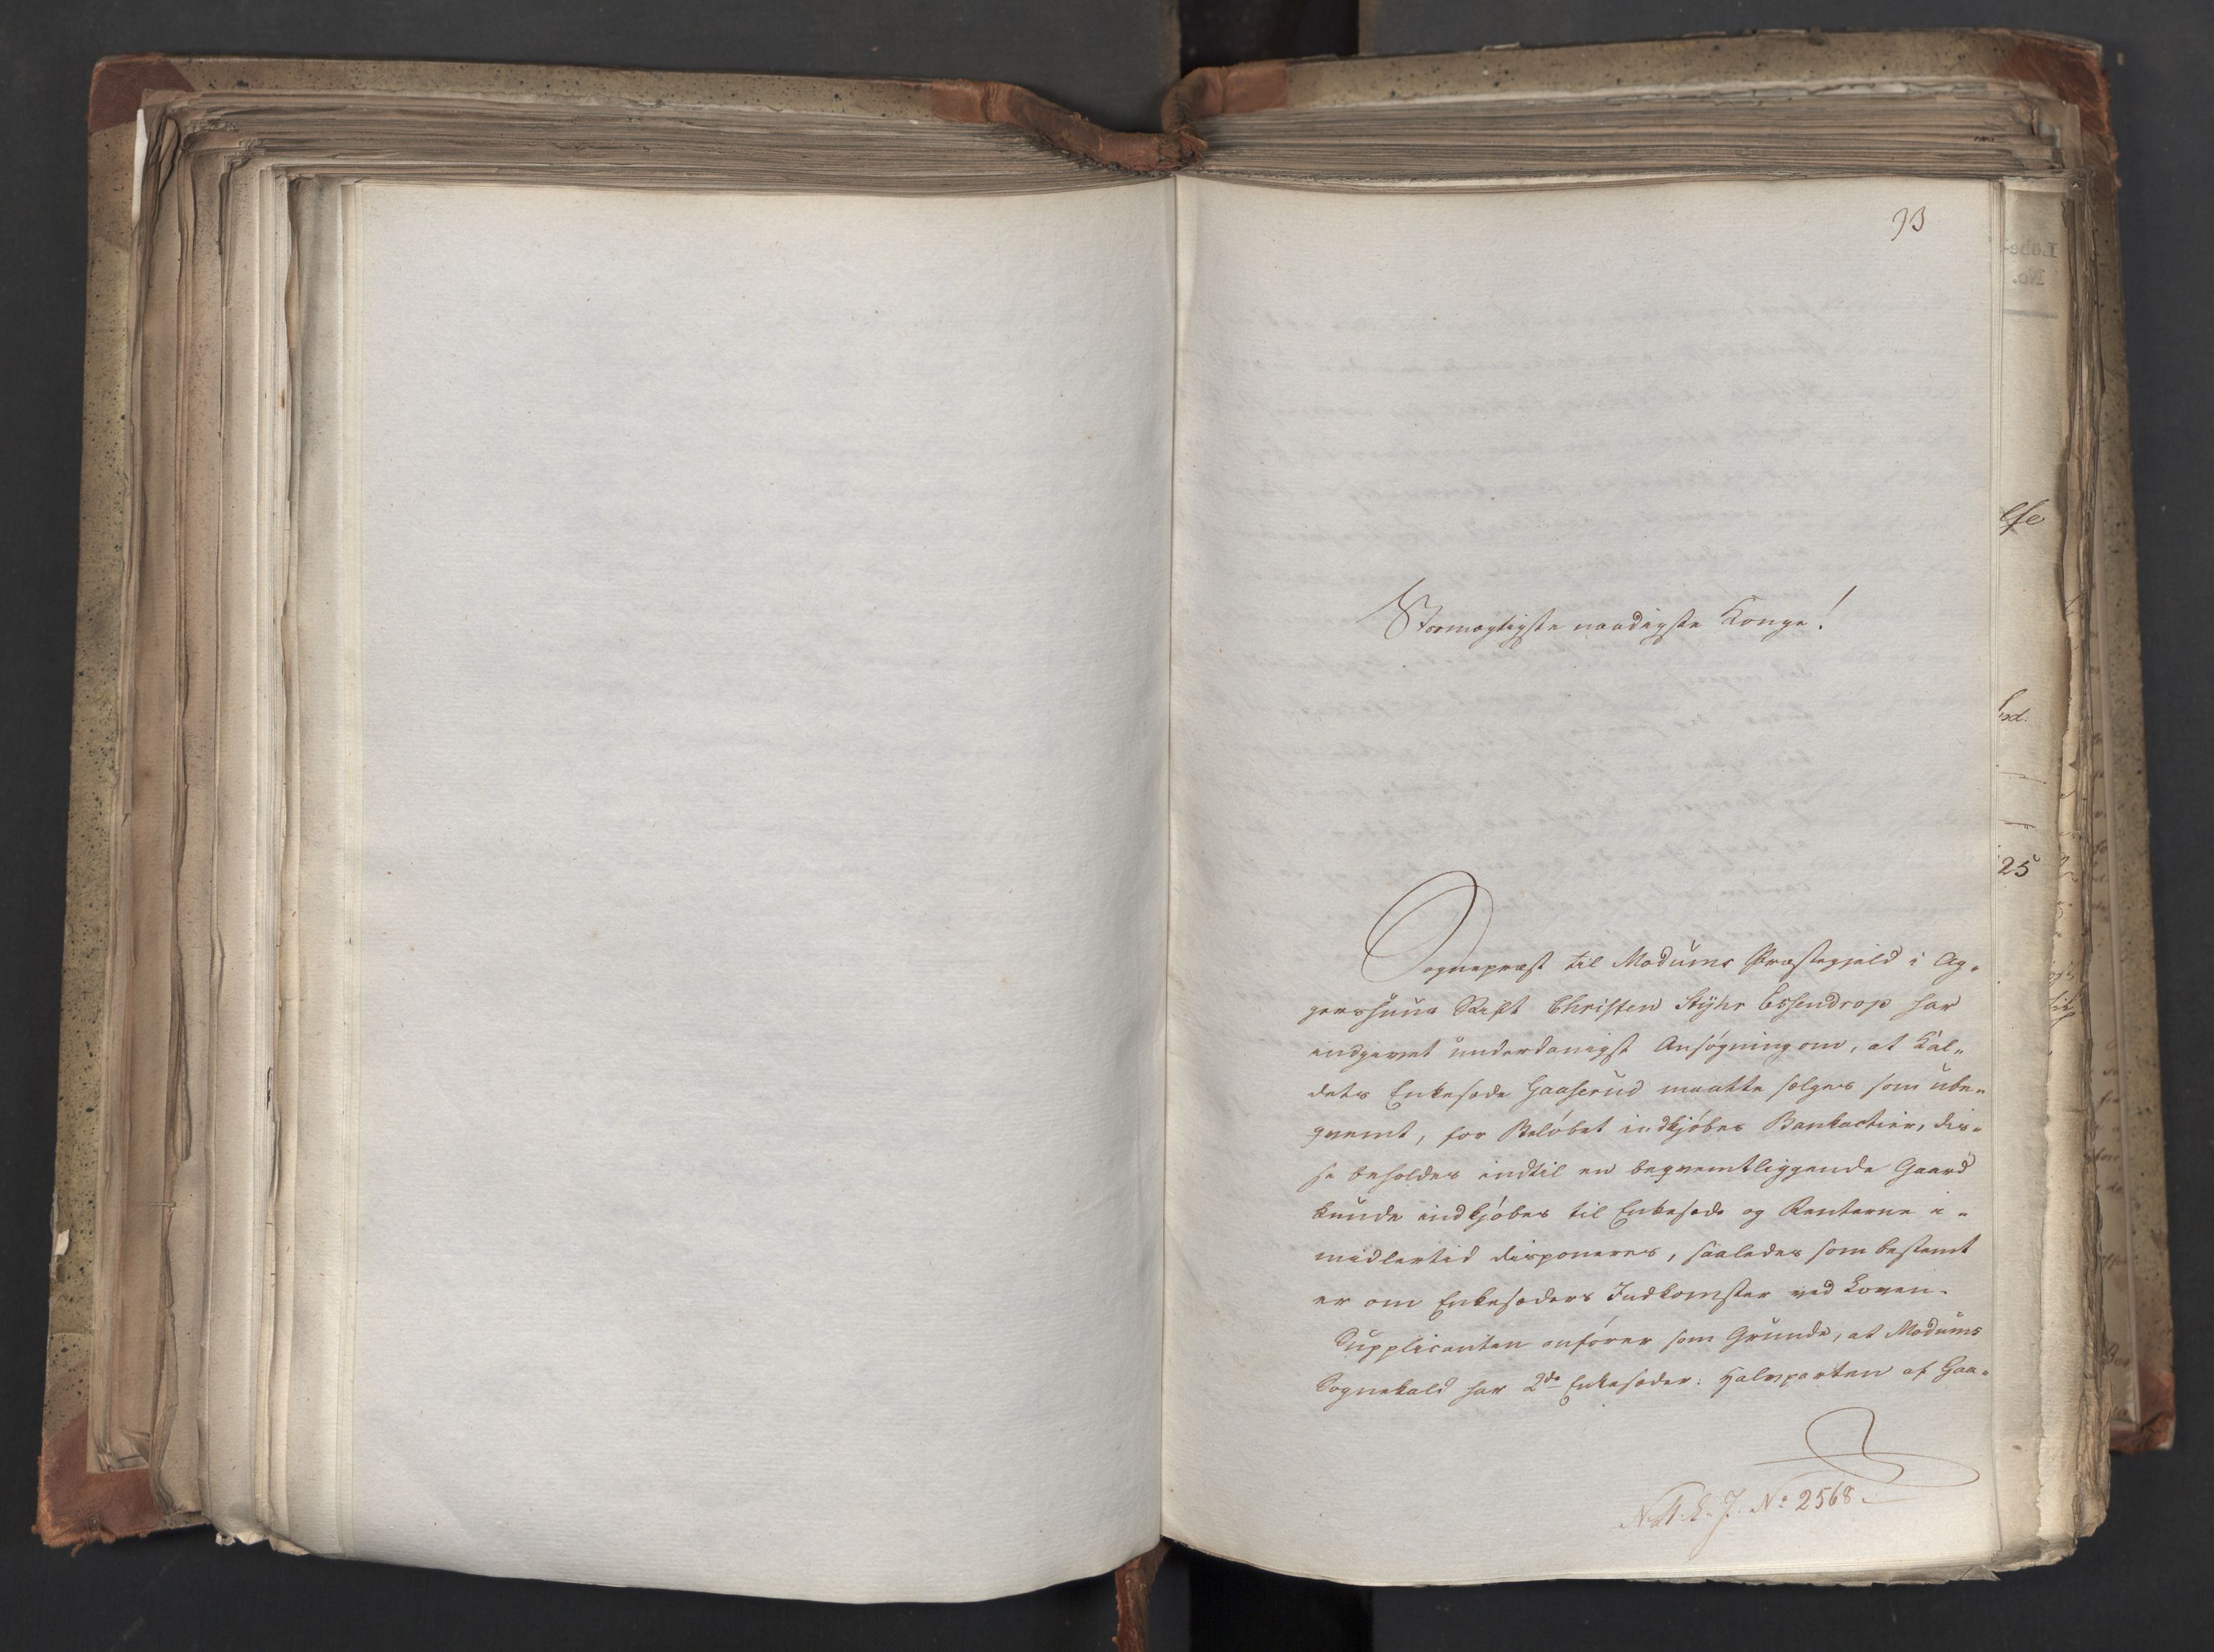 93
Stormægtigste naadigste Konge!
Sognepræst til Modums Præstegjeld i Ag„
gershuus Stift Christen Stÿhr Essendrop har
indgivet underdanigst Ansøgning om, at Kal„
dets Enkesæde Gaaserud maatte sælges som ube„
qvemt, for Beløbet indkjøbes Bankactier, dis„
se beholdes indtil en beqvemtliggende Gaard
kunde indkjøbes til Enkesæde og Renterne i„
midlertid disponeres, saaledes som bestemt
er om Enkesæders Indkomster ved Loven.
Supplicanten anfører som Grunde, at Modums
Sognekald har 2de Enkesæder: Halvparten af Gaa„
No 2568.
Løbe-
No.
25